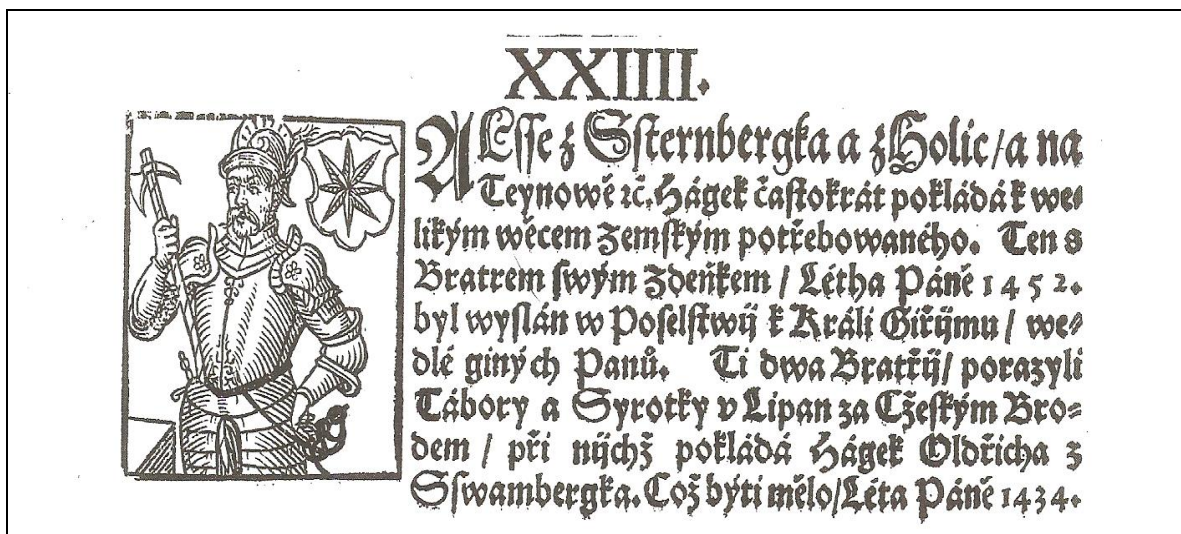 XXIIII.
ALſſe z Sſternbergka a z Holic/a na
Teynowě ꝛč. Hágek častokrát pokládá k we⸗
likým wěcem Zemſkým potřebowaného. Ten s
Bratrem ſwým Zdeňkem / Létha Páně 1452.
byl wyſlán w Poſelſtwij k Králi Giřijmu / we⸗
dlé giných Panů. Ti dwa Bratřij/ porazyli
Tábory a Syrotky v Lipan za Cžeſkým Bro⸗
dem / při nijchž pokládá Hágek Oldřicha z
Sſwambergka. Což býti mělo/Léta Páně 1434.